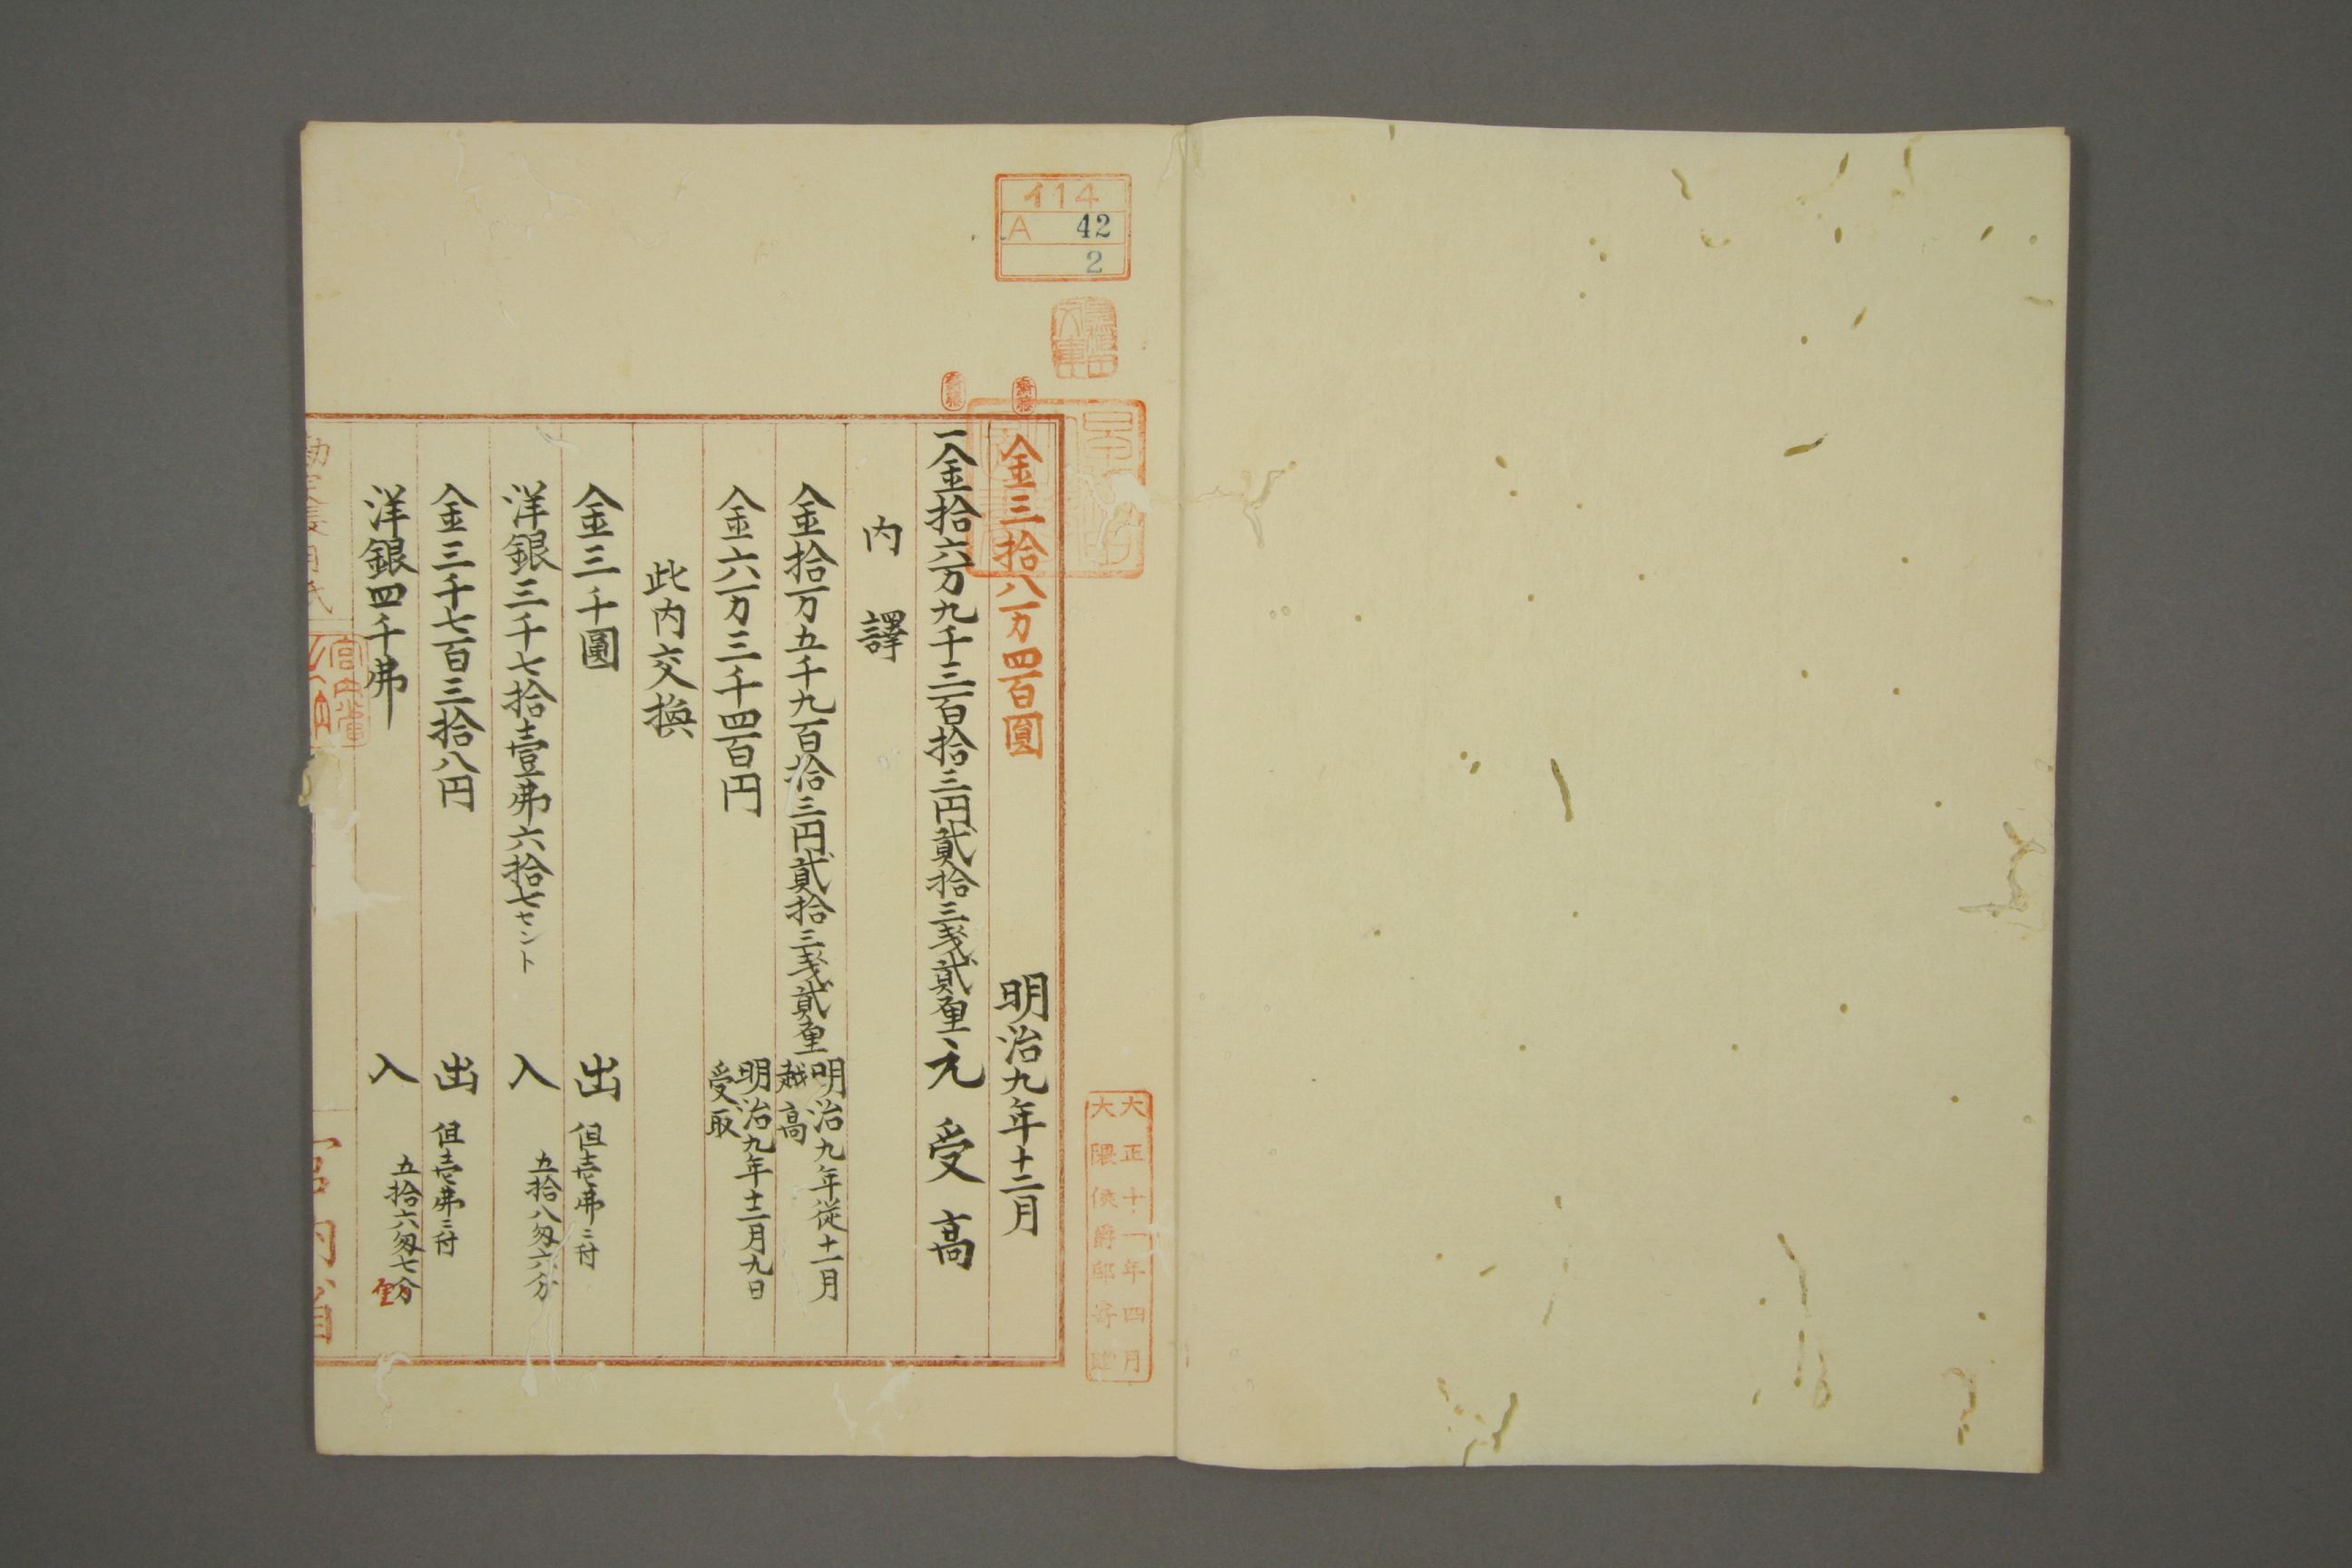 イ14
A 42
2
金三拾八万四百圓
明治九年十二月
一金拾六万九千三百拾三円貳拾三戔貳厘 元受高
内譯
金拾万五千九百拾三円貳拾三戔貳厘 明治九年従十一月
越高
金六万三千四百円 明治九年十二月九日
受取
此内交換
金三千圓 出 但壱弗ニ付
五拾八匁六分
洋銀三千七拾壹弗六拾七セント 入
金三千七百三拾八円 出 但壱弗ニ付
五拾六匁七分
洋銀四千弗 入
大正十一年四月
大隈侯爵邸寄贈
宮内省